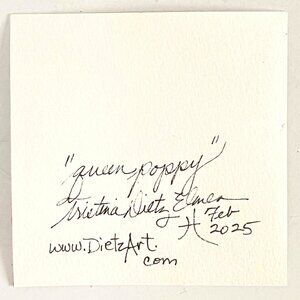 "queen poppy"
Dietz
Feb
2025
www.DietzArt.
com